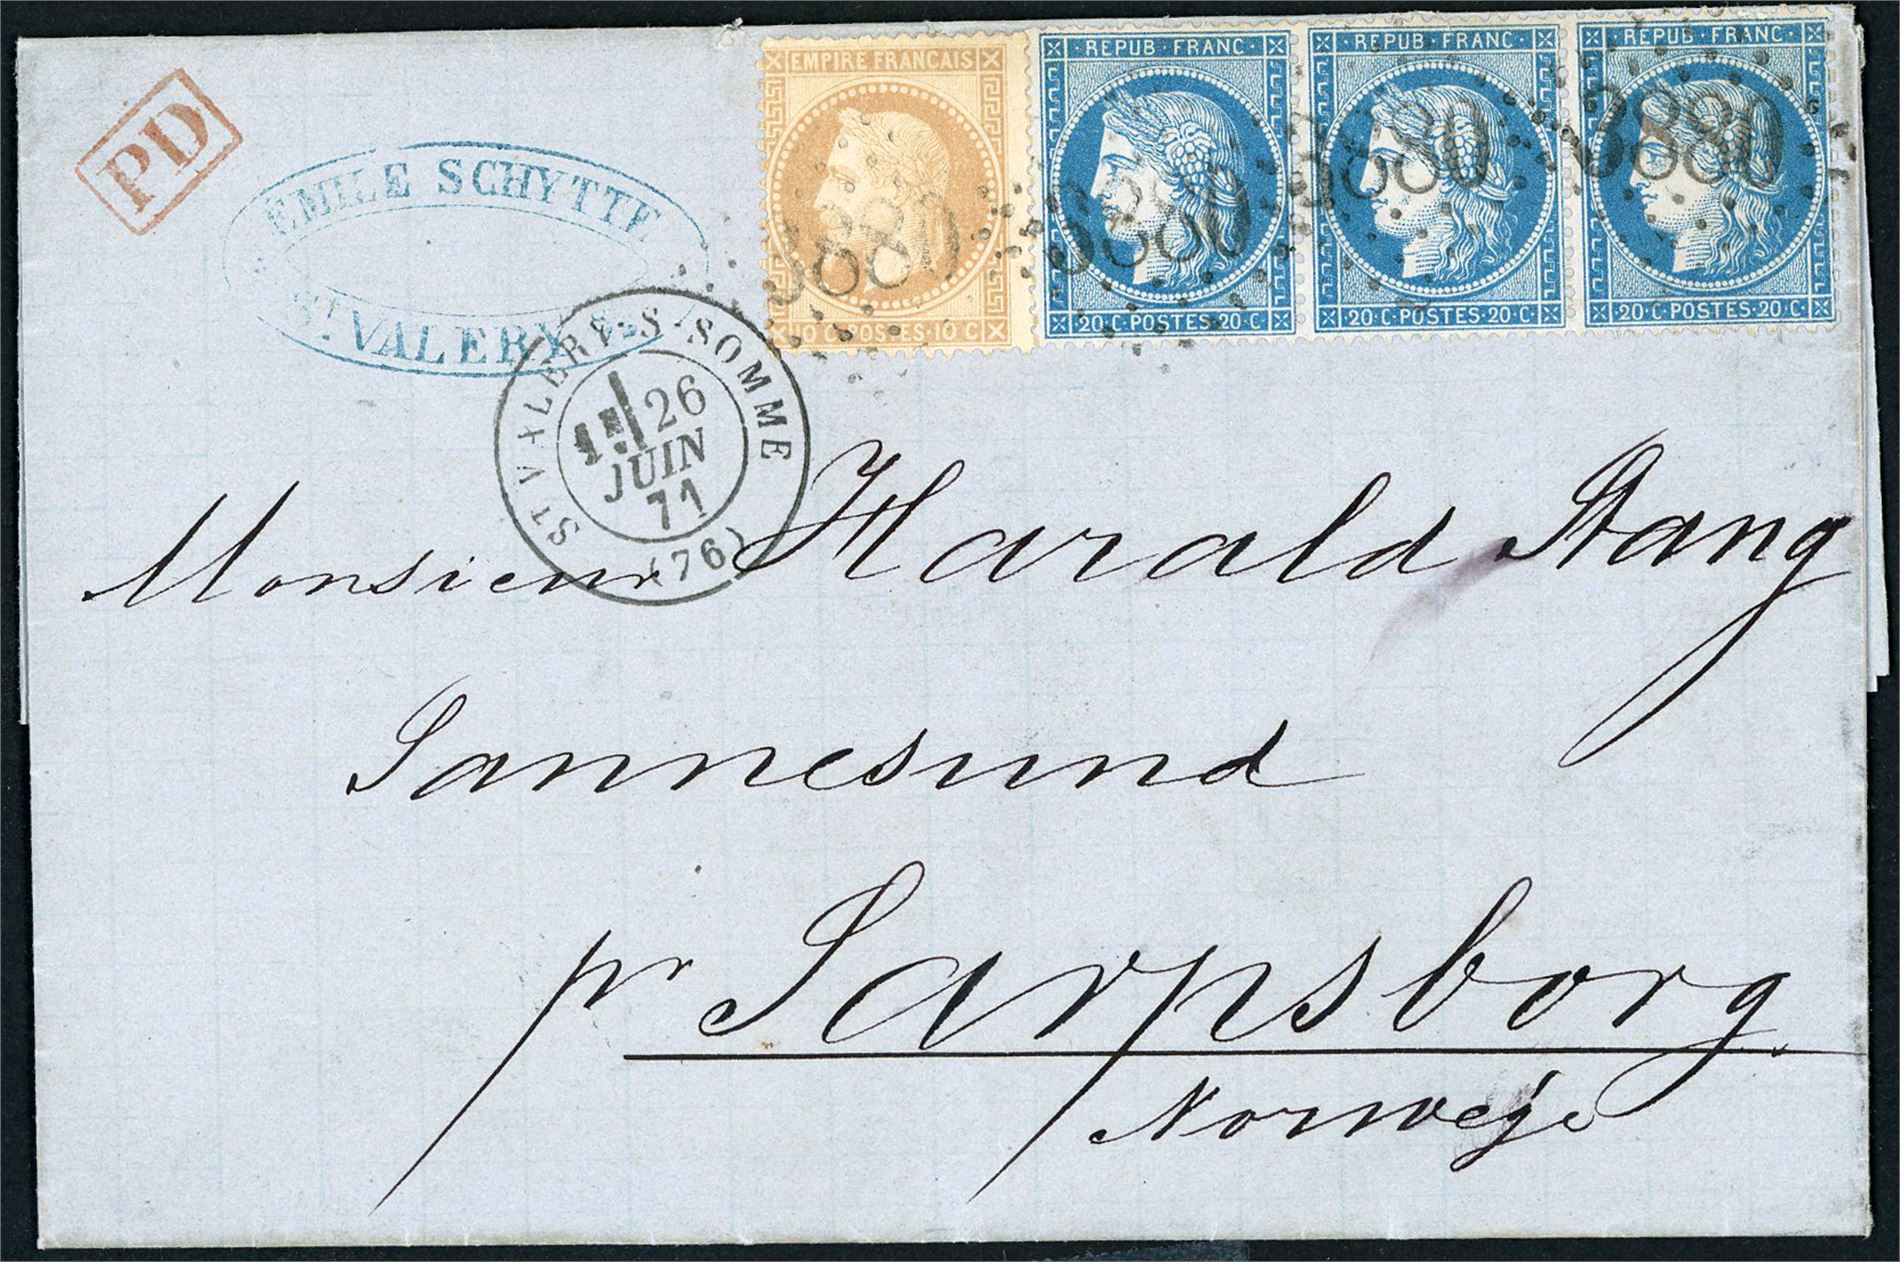 PD
EMILE SCHYTTE
ST VALERY
EMPIRE FRANCAIS
10 C POSTES 10 C
REPUB FRANC
20 C POSTES 20 C
REPUB FRANC
20 C POSTES 20 C
REPUB FRANC
20 C POSTES 20 C
3880
3880
3880
3880
ST VALERY-S-SOMME
26
JUIN
71
(76)
Monsieur Harald Stang
Sannesund
pr Sarpsborg
Norwège